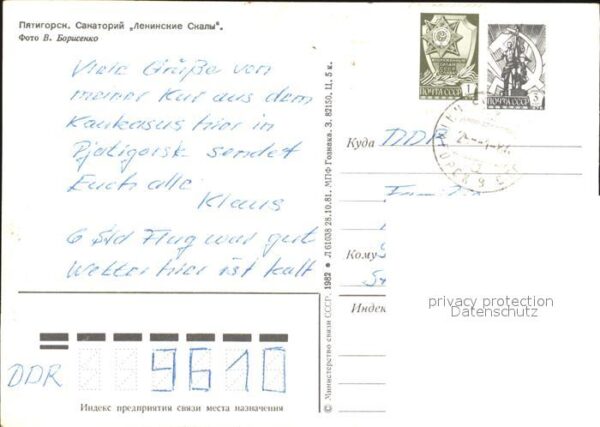 Пятигорск. Санаторий „Ленинские Скалы".
Фото В. Борисенко
Viele Grüße von
meiner Kur aus dem
Kaukasus hier in
Pjatigorsk sendet
Euch alle
Klaus
6 Std Flug war gut
Wetter hier ist kalt
© Министерство связи СССР. 1982 • Л 61038 28.10.81. МПФ Гознака. З. 82150. Ц. 5 к.
ПОЧТА СССР 1
ПОЧТА СССР 3
Куда DDR
Кому
Индекс
privacy protection
Datenschutz
DDR 9610
Индекс предприятия связи места назначения